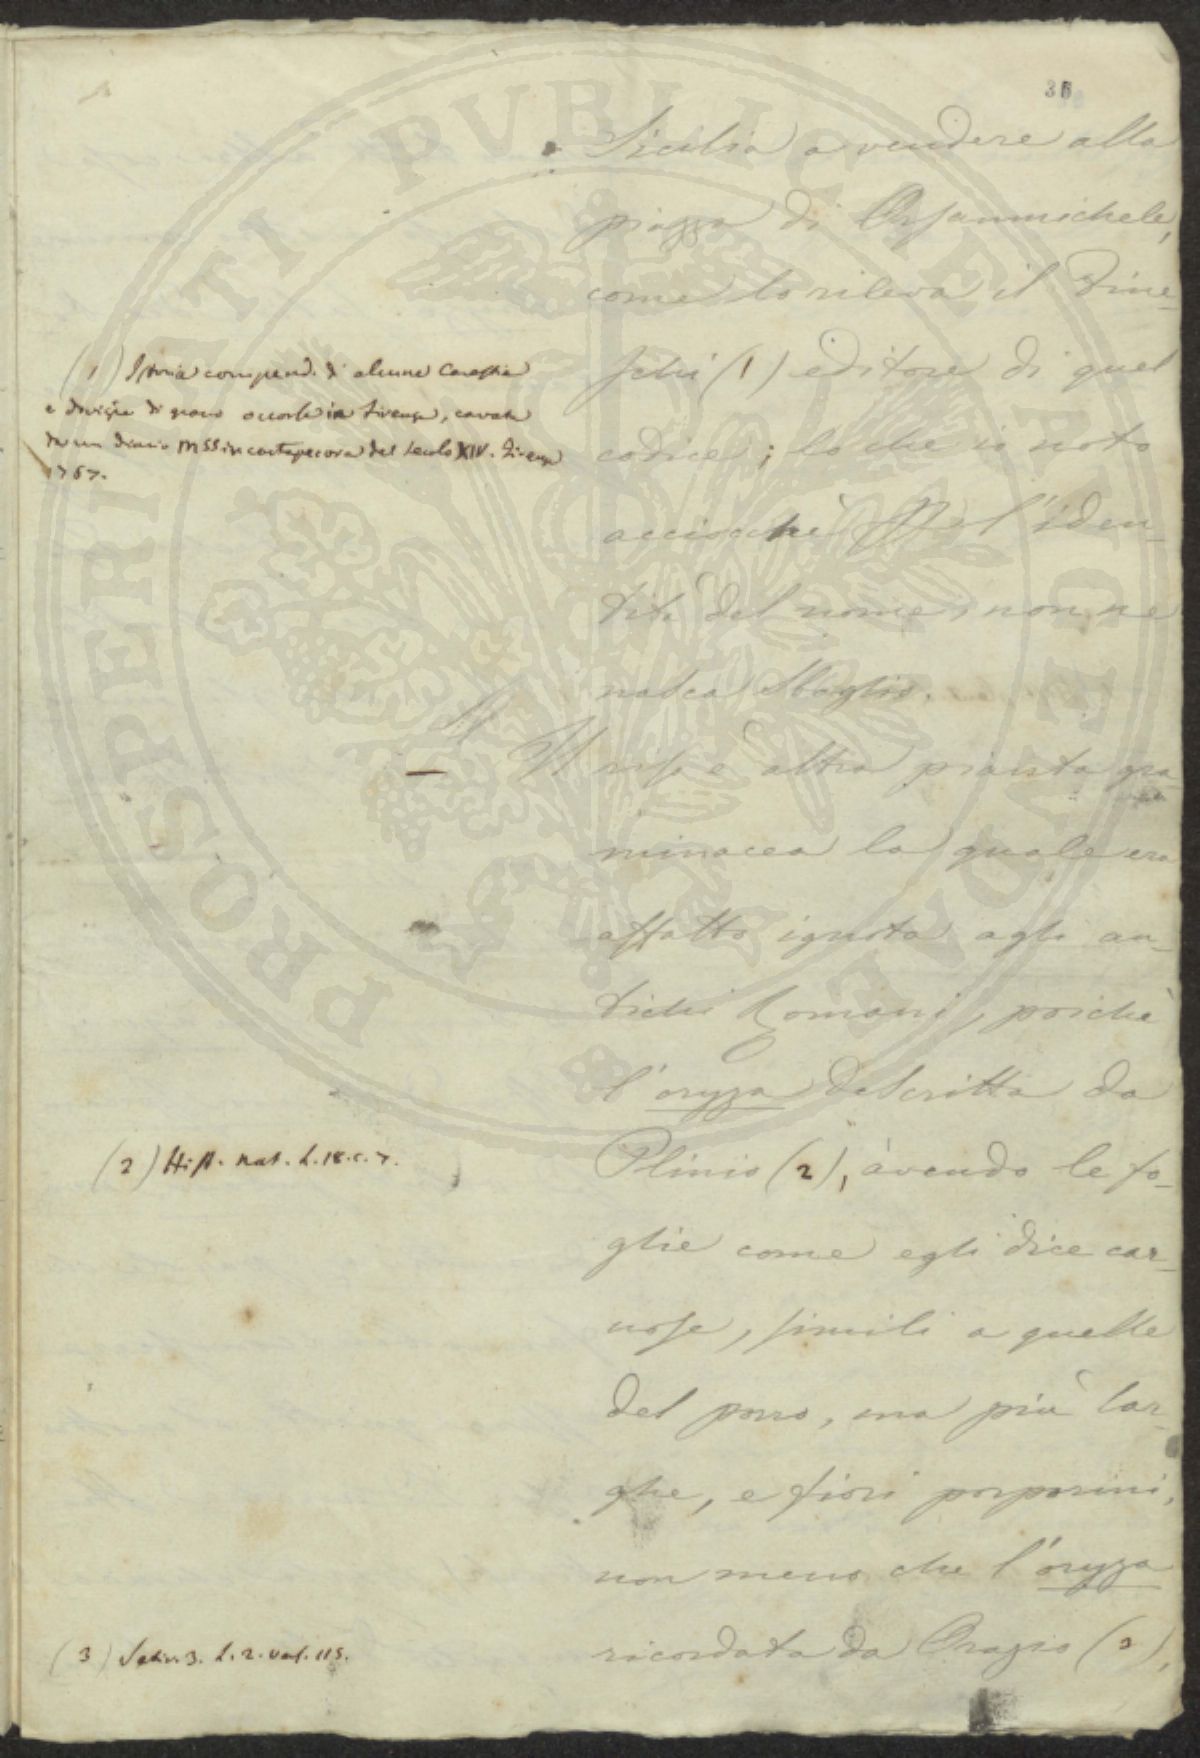 36
Sicilia a vendere alla
piazza di Orsanmichele,
come lo rileva il Fine-
schi (1) editore di quel
codice; lo che io noto
acciocchè l'iden-
tità del nome, non ne
nasca sbaglio.
Il riso è altra pianta gra
minacea la quale era
affatto ignota agli an-
tichi Romani, poichè
l'oryza descritta da
Plinio (2), avendo le fo-
glie come egli dice car-
nose, simili a quelle
del porro, ma più lar-
ghe, e fiori porporini,
non meno che l'oryza
ricordata da Orazio (3),
(1) Istoria compend. di alcune Carestie
e dovizie di grano occorse in Firenze, cavata
da un diario MSS in cartapecora del secolo XIV. Firenze
1767.
(2) Hist. nat. L. 18. c. 7.
(3) Satir. 3. L. 2. vers. 115.
PROSPERITATI PVBLICAE